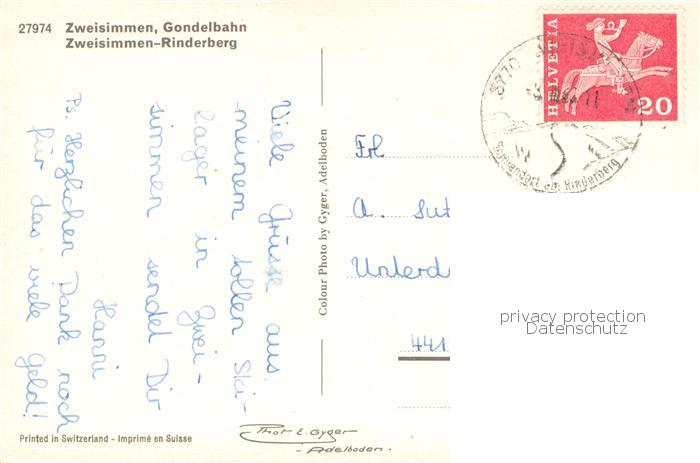 27974 Zweisimmen, Gondelbahn
Zweisimmen–Rinderberg
Viele Grüsse aus
meinem tollen Ski-
lager in Zwei-
simmen sendet Dir
Hanni
Ps. Herzlichen Dank noch
für das viele Geld!
Colour Photo by Gyger, Adelboden
HELVETIA
20
3770
Sonnendorf am Rinderberg
Frl
A. Sut
Unterd
441
privacy protection
Datenschutz
Printed in Switzerland - Imprimé en Suisse
Phot. E. Gyger
- Adelboden.